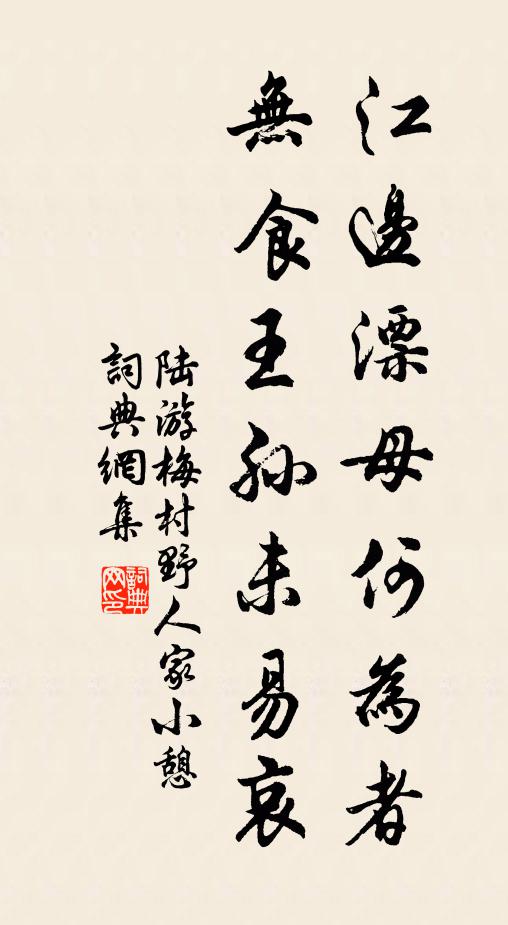 江邊漂母何為者
無食王孫未易哀
陸游梅村野人家小憩
詞典網集
詞典
网印